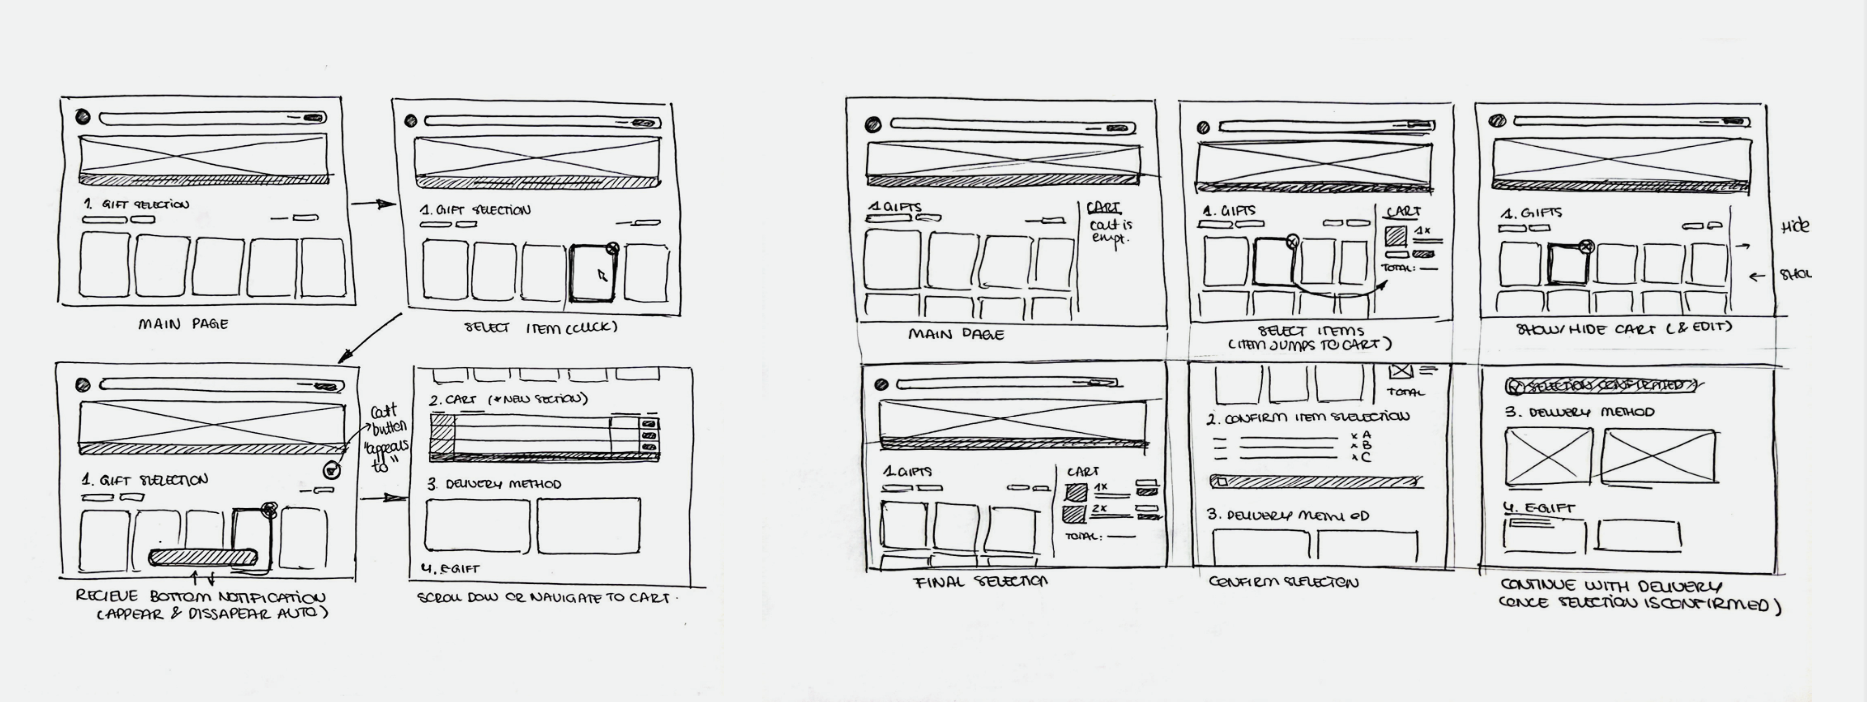 1. GIFT SELECTION
MAIN PAGE
1. GIFT SELECTION
SELECT ITEM (CLICK)
1. GIFT SELECTION
Cart
button
"appears
to"
RECIEVE BOTTOM NOTIFICATION
(APPEAR & DISSAPEAR AUTO)
2. CART (*NEW SECTION)
3. DELIVERY METHOD
4. EGIFT
SCROLL DOW OR NAVIGATE TO CART.
1 GIFTS
CART
cart is
empt.
MAIN PAGE
1. GIFTS
CART
1x
TOTAL:
SELECT ITEMS
(ITEM JUMPS TO CART)
1. GIFTS
Hide
SHOW/HIDE CART (& EDIT)
1 GIFTS
CART
1x
2x
TOTAL:
FINAL SELECTION
TOTAL
2. CONFIRM ITEM SELECTION
x A
x B
x C
3. DELIVERY METHOD
CONFIRM SELECTION
SELECTION CONFIRMATED
3. DELIVERY METHOD
4. EGIFT
CONTINUE WITH DELIVERY
(ONCE SELECTION IS CONFIRMED)